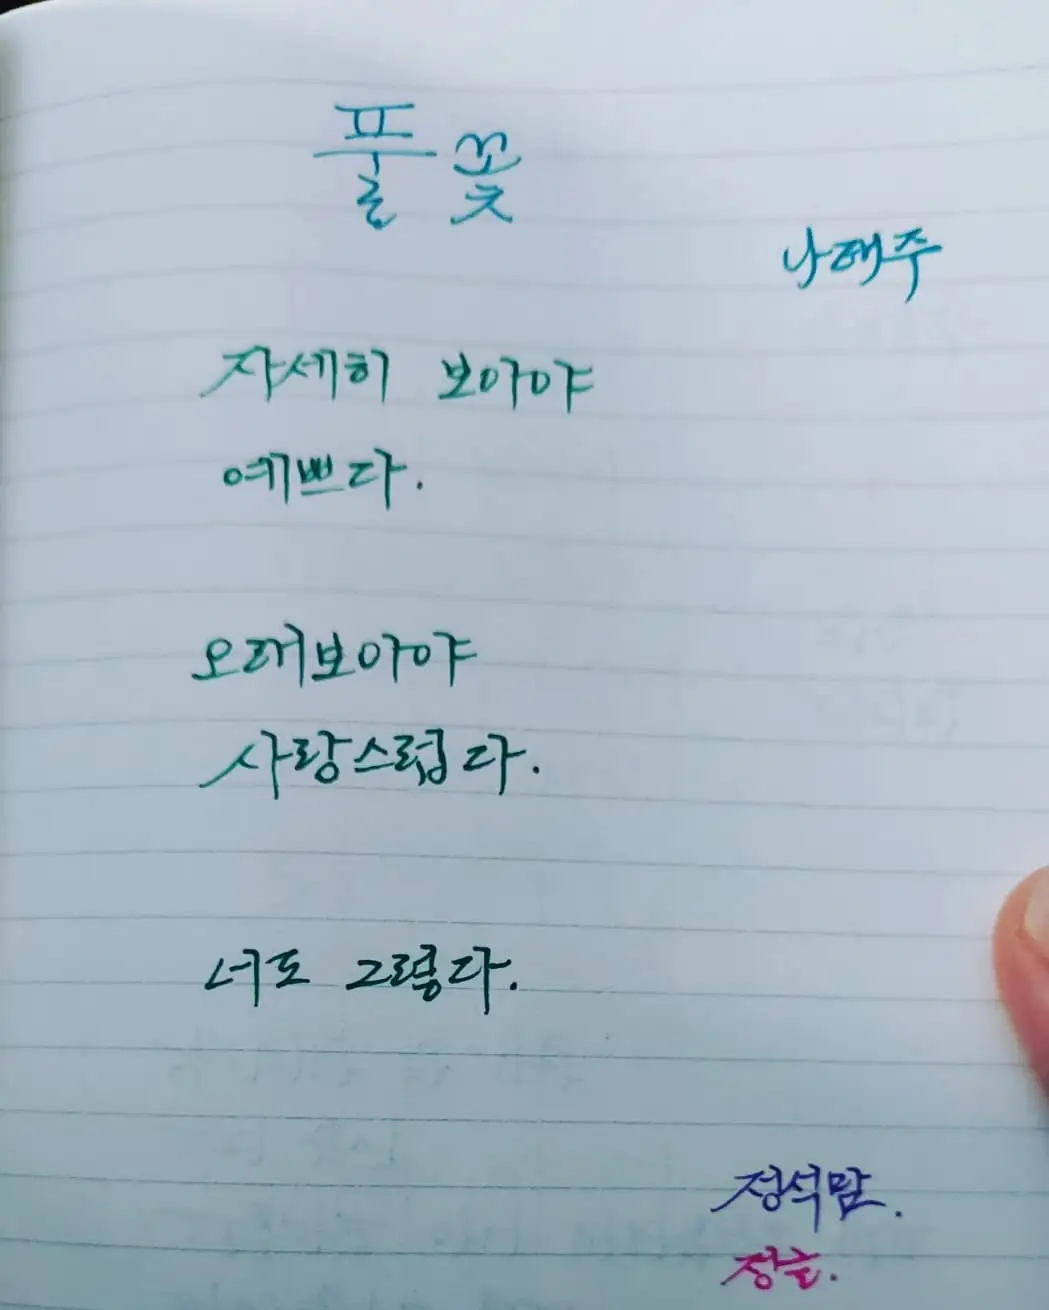 풀꽃
나태주
자세히 보아야
예쁘다.
오래보아야
사랑스럽다.
너도 그렇다.
정석맘.